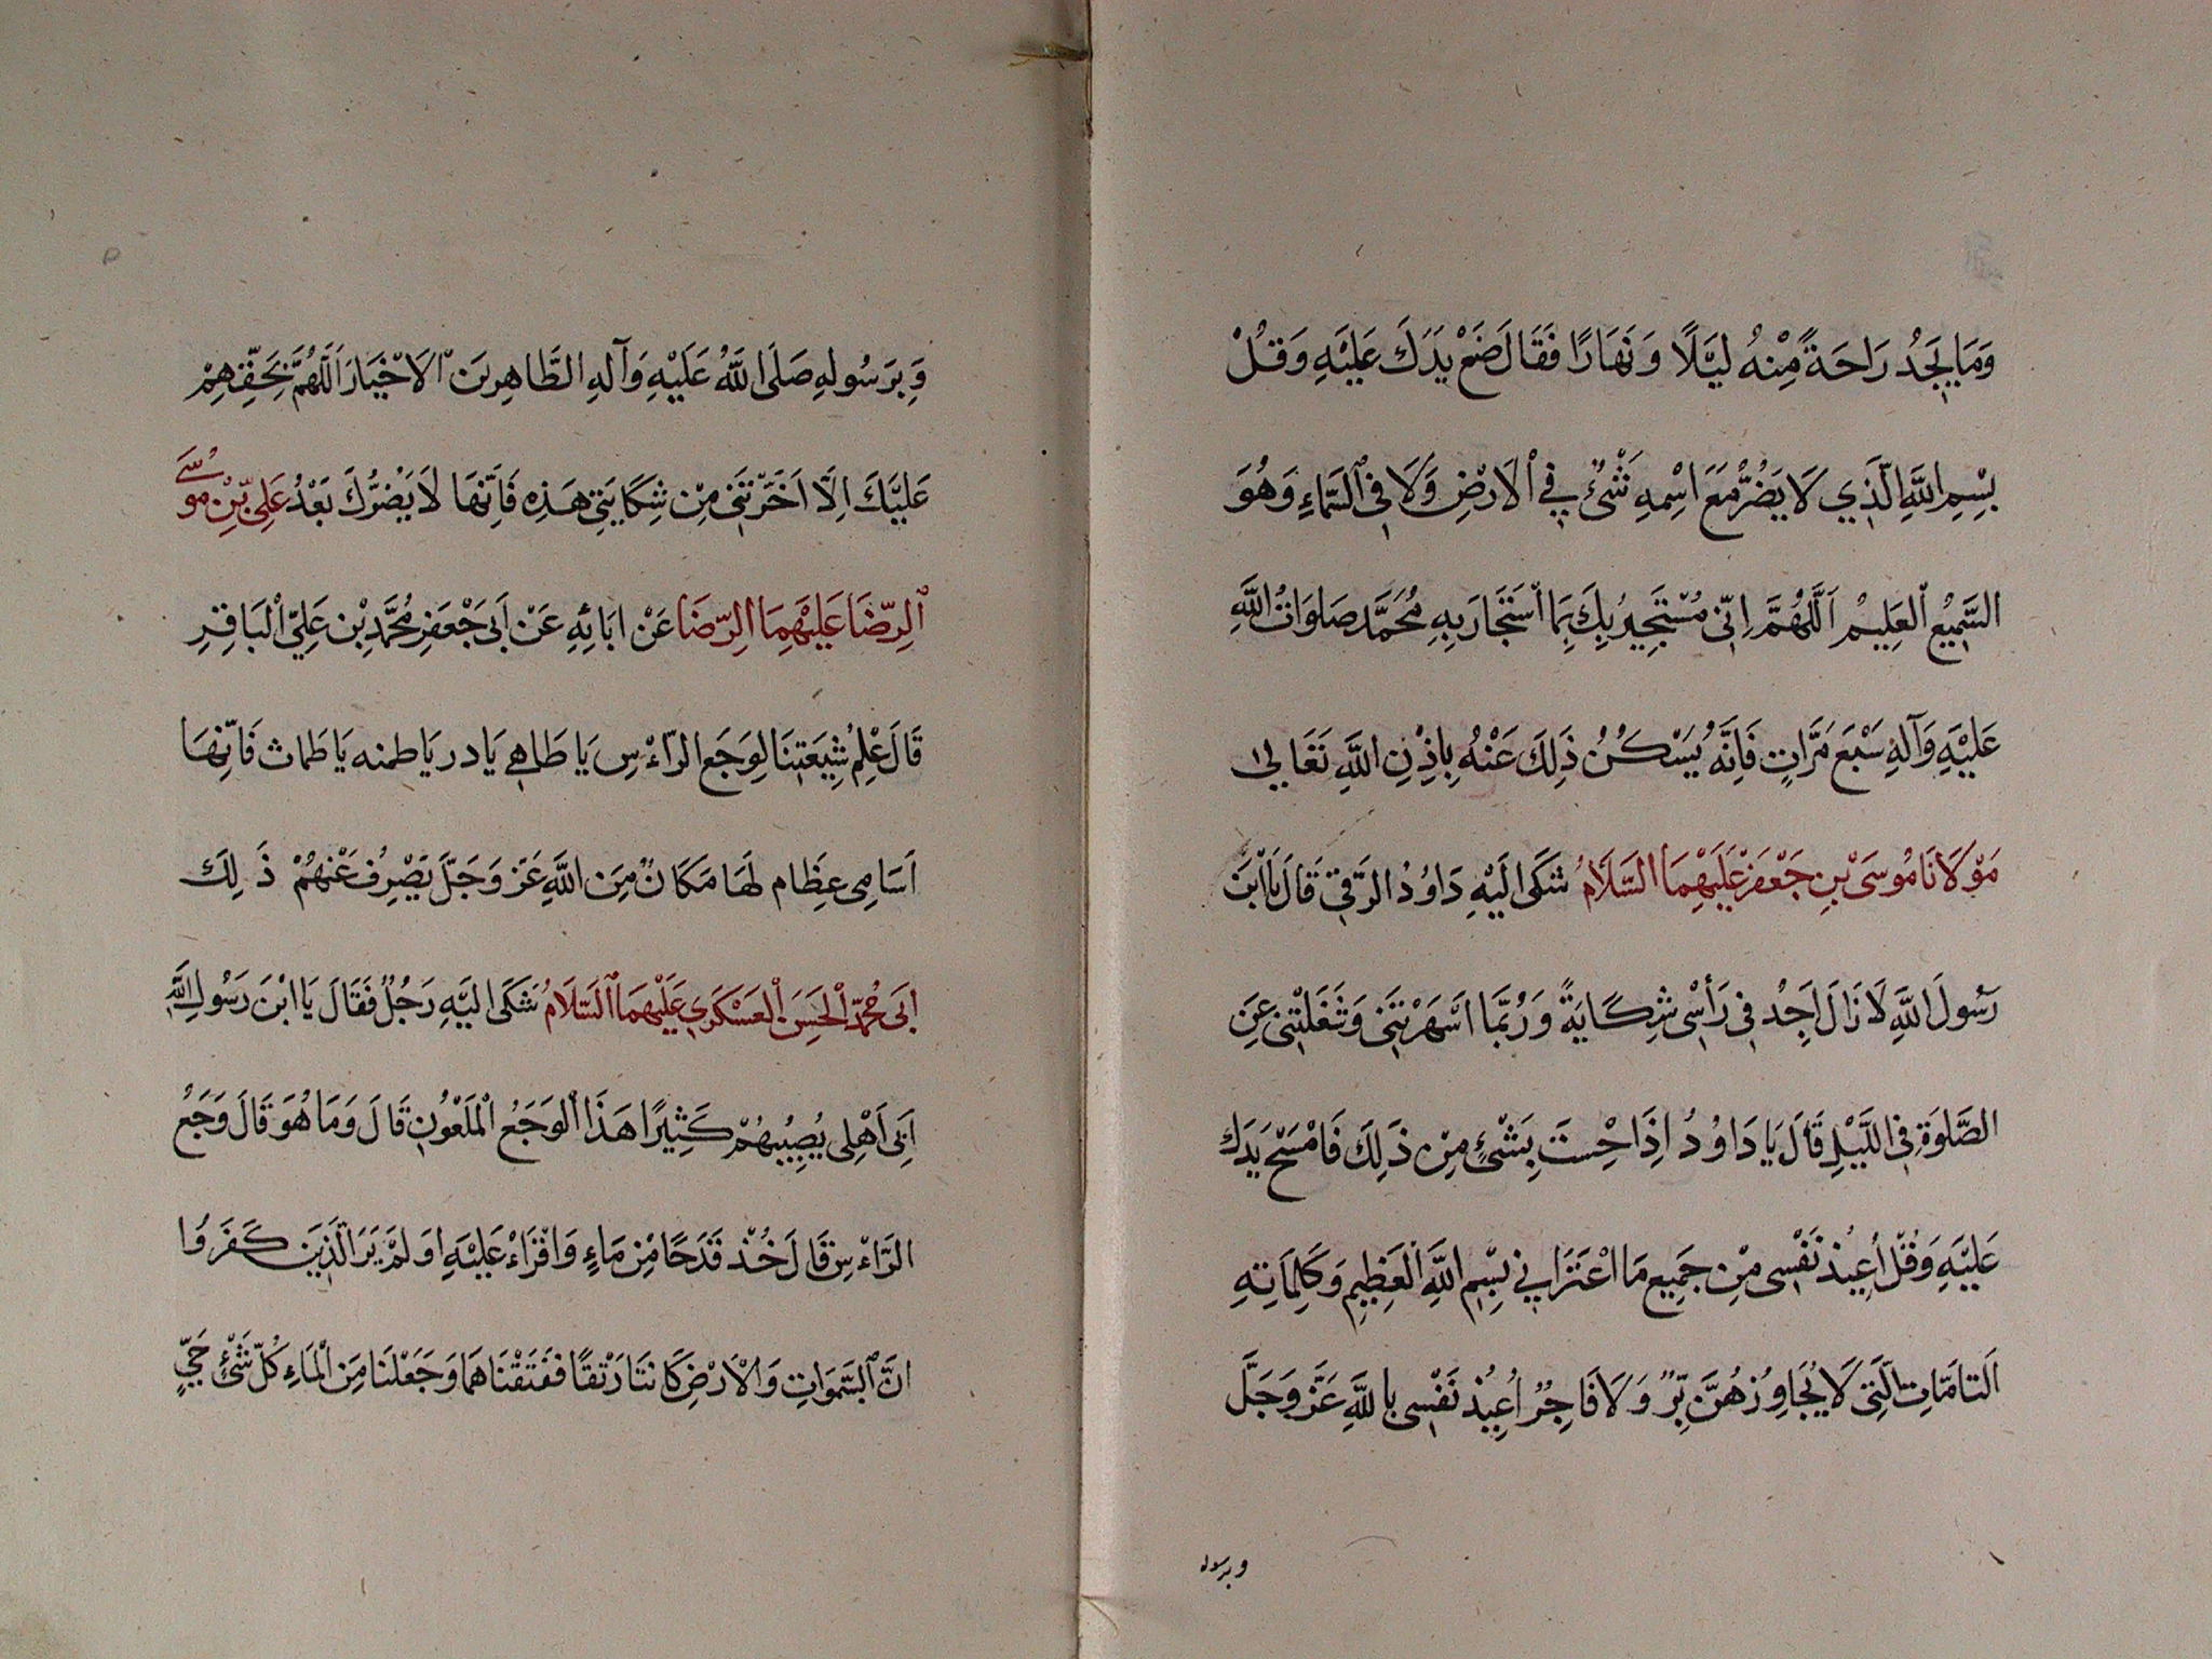 وَمَا يَجِدُ رَاحَةً مِنْهُ لَيْلًا وَنَهَارًا فَقَالَ ضَعْ يَدَكَ عَلَيْهِ وَقُلْ
بِسْمِ اللَّهِ الَّذِي لَا يَضُرُّ مَعَ اسْمِهِ شَىْءٌ فِي الْاَرْضِ وَلَا فِي السَّمَاءِ وَهُوَ
السَّمِيعُ الْعَلِيمُ اَللَّهُمَّ اِنِّي مُسْتَجِيرُ بِكَ بِمَا اسْتَجَارَ بِهِ مُحَمَّد صَلَوَاتُ اللَّهِ
عَلَيْهِ وَآلِهِ سَبْعَ مَرَّاتٍ فَاِنَّهُ يَسْكُنُ ذَلِكَ عَنْهُ بِاِذْنِ اللَّهِ تَعَالٰى
مَوْلَانَا مُوسَى بْنِ جَعْفَرْ عَلَيْهِمَا السَّلَامُ شَكَى اِلَيْهِ دَاوُدُ الرَّقِى قَالَ يَا ابْنَ
رَسُولَ اللَّهِ لَا زَالَ اَجِدُ فِى رَأْسِى شِكَايَةً وَرُبَّمَا اَسْهَرَتْنَى وَشَغَلْتْنِى عِنِ
الصَّلَوةِ فِى اللَّيْلِ قَالَ يَا دَاوُدُ اِذَا حْسِسَتَ بِشَىْءٍ مِنْ ذَلِكَ فَامْسَحْ يَدَكَ
عَلَيْهِ وَقُلْ اُعِيذ نَفْسِى مِنْ جَمِيع مَا اعْتَرَانِي بِسْمِ اللَّهِ الْعَظِيمِ وَكَلِمَاتِهِ
اَلتَامَّاتِ الَّتِى لَا يُجَاوِزُهُنَّ بِرٌّ وَلَا فَاجِرٌ اُعِيذُ نَفْسِى بِاللَّهِ عَزَّ وَجَلَّ
وبرسوله
وَبِرَسُولِهِ صَلَى اللَّهُ عَلَيْهِ وَآلِهِ الطَّاهِرِينَ الْاَخْيَارَ اَللَّهُمَّ بِحَقِّهِمْ
عَلَيْكَ اِلَّا اَخَّرْتَنِى مِنْ شِكَايَتِى هَذِهِ فَاِنَّهَا لَا يَضُرُّكَ بَعْدُ عَلِى بْنِ مُوسَى
اَلرِّضَا عَلَيْهِمَا الرِّضَا عَنْ ابَائِهِ عَنْ اَبَى جَعْفَرِ مُحَمَّدِ بْن عَلِيّ الْبَاقِرِ
قَالَ عْلِمُ شِيعَتِنَا لِوَجَع الرَّاءْسِ يَا طَاهِى يَا در يَا طمنه يَا طمات فَاِنَّهَا
اَسَامِى عِظَام لَهَا مَكَانٌ مِنَ اللَّهِ عَزَّ وَجَلَّ يَصْرِف عَنْهُمْ ذَلِكَ
اَبَى مُحَمَّد الْحَسَنِ الْعَسْكَرِي عَلَيْهِمَا السَّلَامُ شَكَى اِلَيْهِ رَجُلٌ فَقَالَ يَا ابْنَ رَسُولِ اللَّهِ
اِنَى اَهْلِى يُصِيبُهُمْ كَثِيرًا هَذَا الْوَجَعُ الْمَلْعُونِ قَالَ وَمَا هُوَ قَالَ وَجَعُ
الرَّاءْسِ قَالَ خُذْ قَدَحًا مِنْ مَاءٍ وَاقْرَاءْ عَلَيْهِ اوَلَمْ يَرَ الَّذِينَ كَفَرُوا
انَّ السَّمَوَاتِ وَالْاَرْضِ كَانَتَا رَتْقًا فَفَتَقْنَاهَمَا وَجَعَلْنَا مِنَ الْمَاءِ كُلَّ شَىْءٍ حَيٍّ